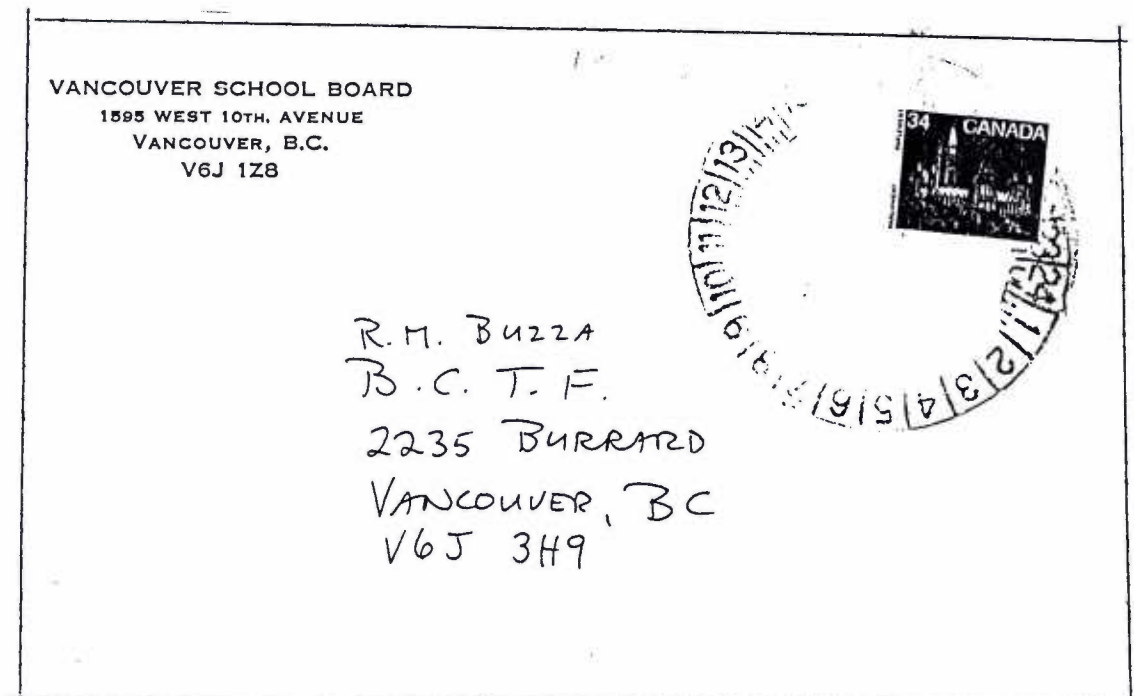 VANCOUVER SCHOOL BOARD
1595 WEST 10TH. AVENUE
VANCOUVER, B.C.
V6J 1Z8
34 CANADA
13
12
11
10
9
6
5
4
3
2
1
24
R.M. BUZZA
B.C.T.F.
2235 BURRARD
VANCOUVER, BC
V6J 3H9